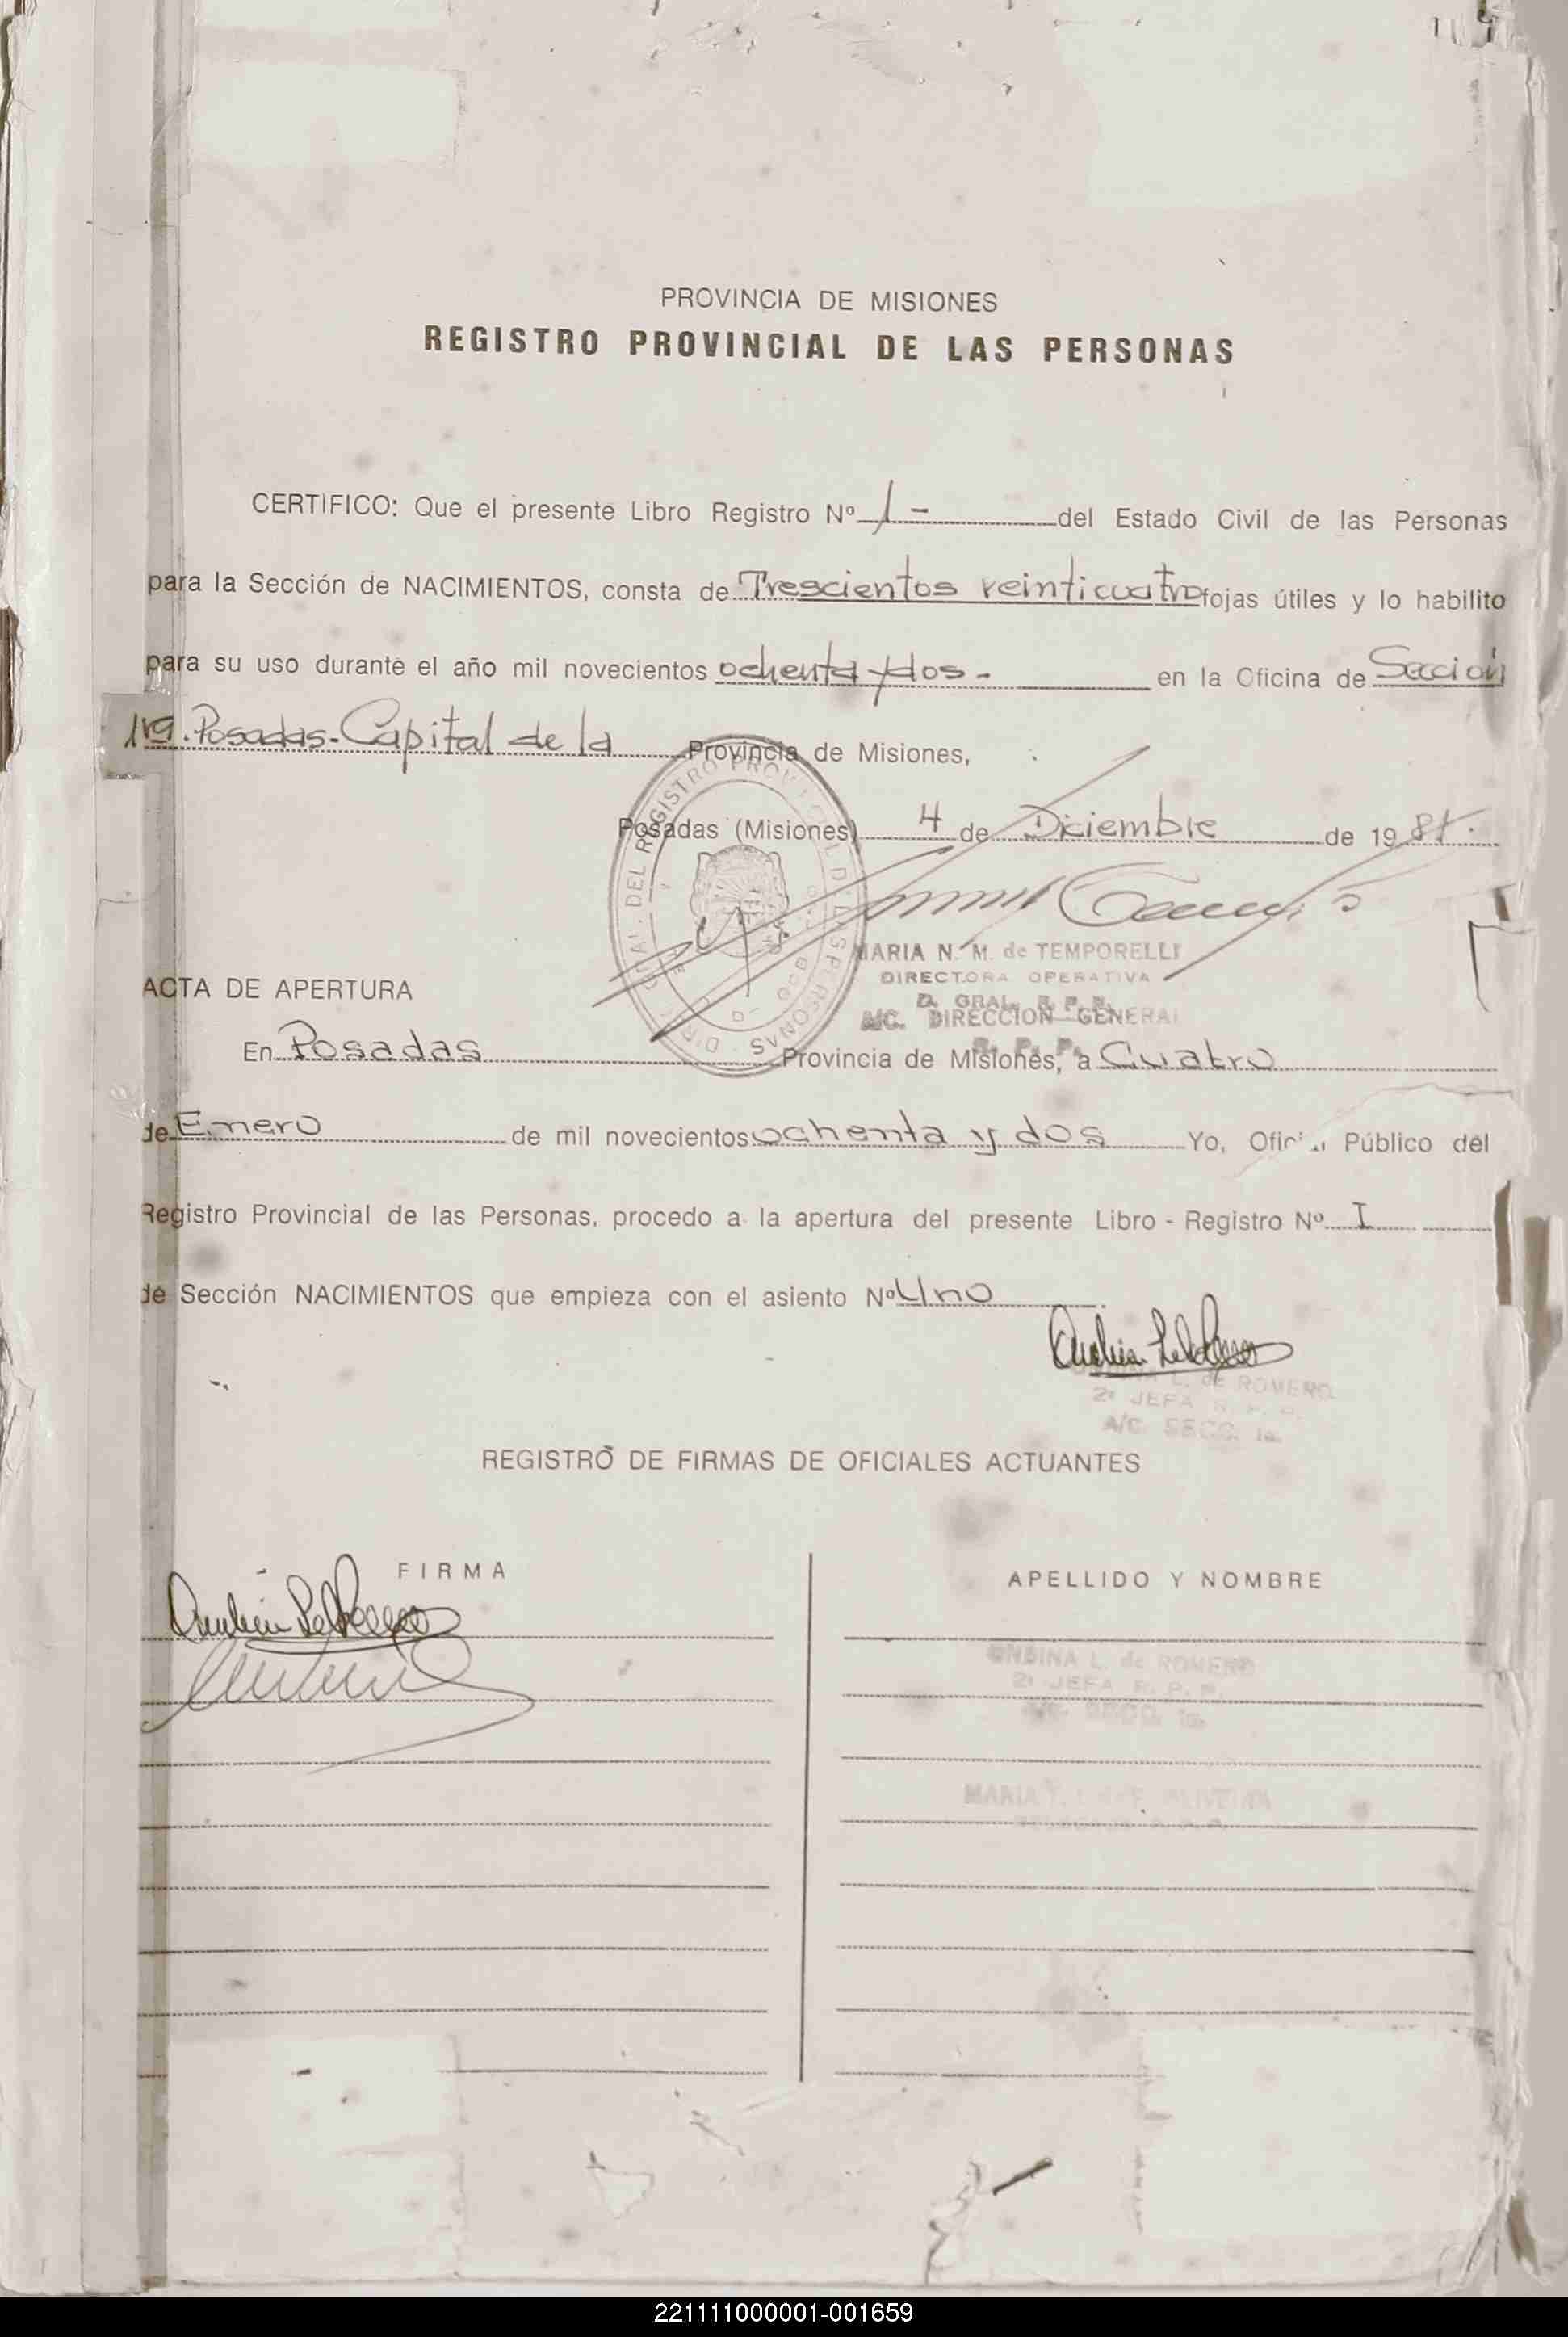 PROVINCIA DE MISIONES
REGISTRO PROVINCIAL DE LAS PERSONAS
CERTIFICO: Que el presente Libro Registro Nº 1 - del Estado Civil de las Personas
para la Sección de NACIMIENTOS, consta de Trescientos veinticuatro fojas útiles y lo habilito
para su uso durante el año mil novecientos ochenta y dos - en la Oficina de Sección
1ra. Posadas - Capital de la Provincia de Misiones,
Posadas (Misiones) 4 de Diciembre de 1981.
MARIA N. M. de TEMPORELLI
DIRECTORA OPERATIVA
D. GRAL. R. P. P.
A/C. DIRECCION GENERAL
R. P. P.
ACTA DE APERTURA
En Posadas Provincia de Misiones, a Cuatro
de Enero de mil novecientos ochenta y dos Yo, Oficial Público del
Registro Provincial de las Personas, procedo a la apertura del presente Libro - Registro Nº I
de Sección NACIMIENTOS que empieza con el asiento Nº Uno
L. de ROMERO
2ª JEFA R. P. P.
A/C. SECC. 1a.
REGISTRO DE FIRMAS DE OFICIALES ACTUANTES
FIRMA
APELLIDO Y NOMBRE
ONDINA L. de ROMERO
2ª JEFA R. P. P.
A/C. SECC. 1a.
MARIA
OLIVEIRA
221111000001-001659